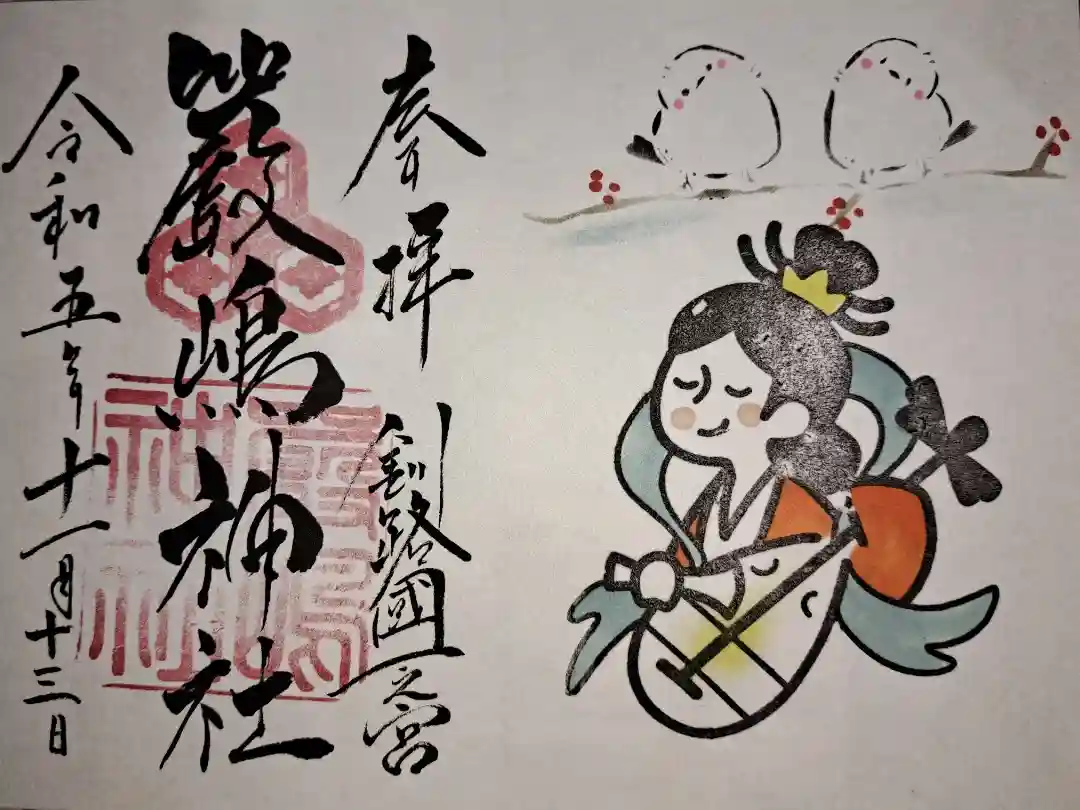 奉拝
釧路國一之宮
嚴嶋神社
令和五年十一月十三日